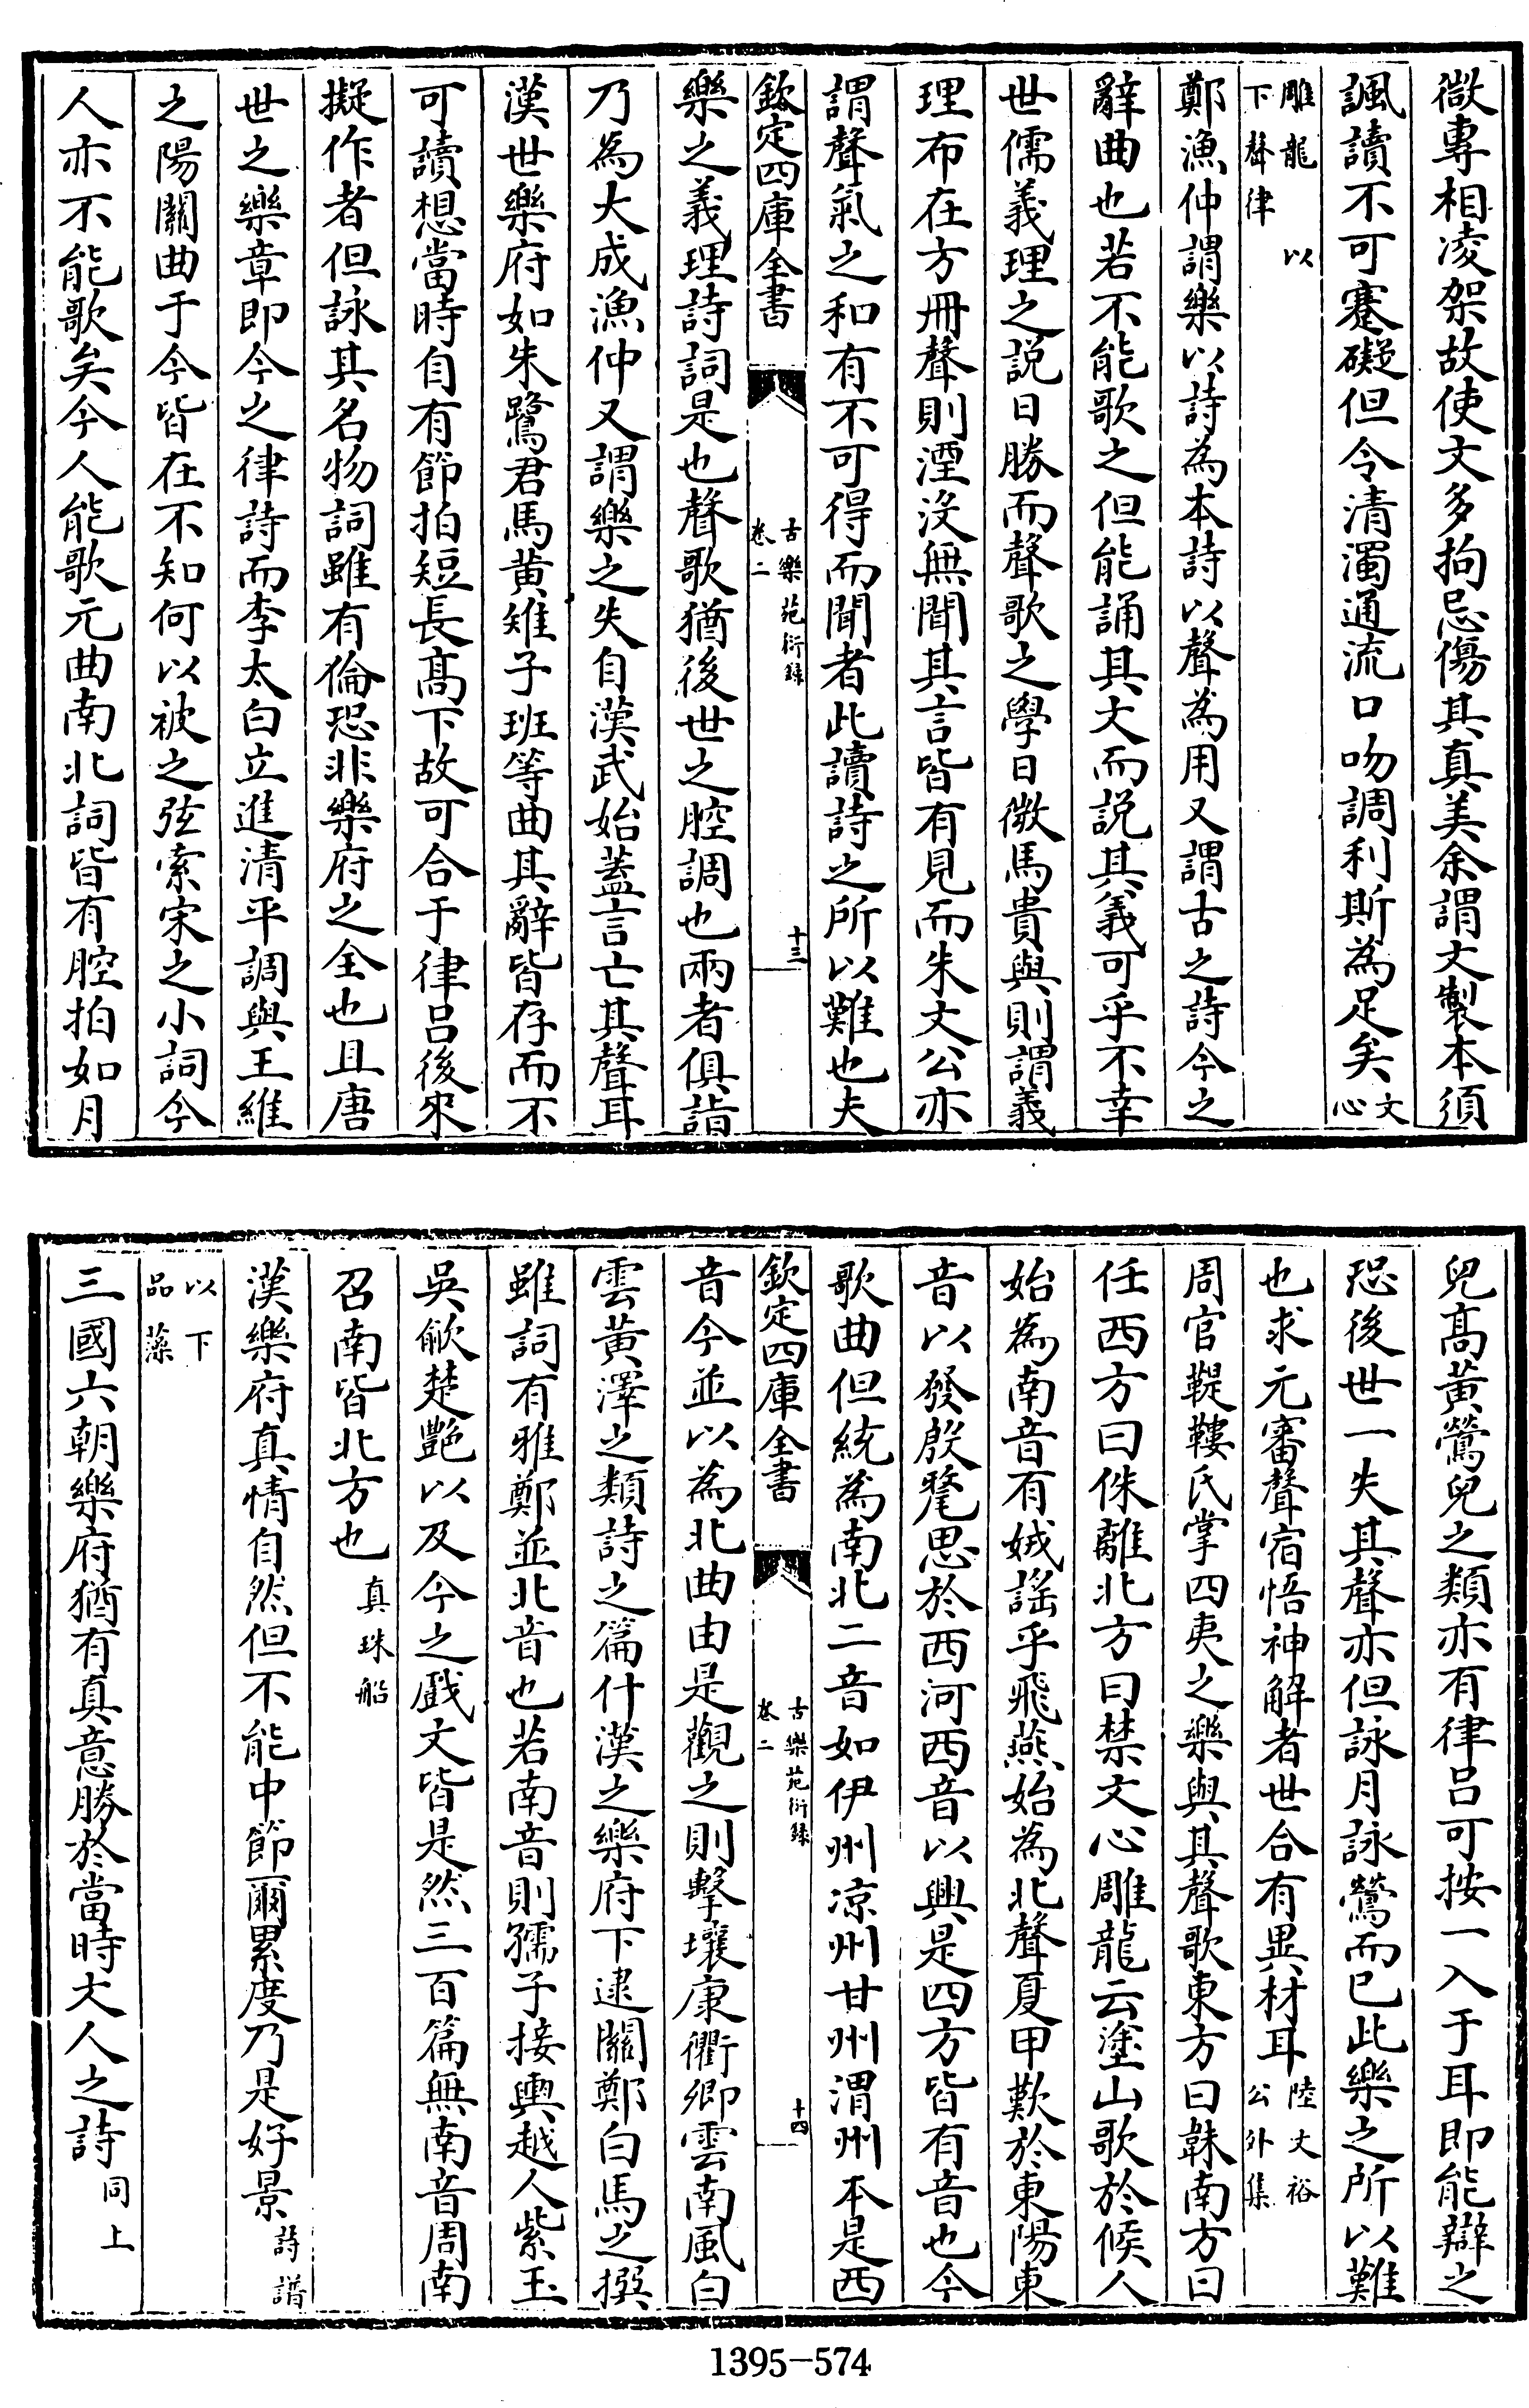 微專相凌架故使文多拘忌傷其真美余謂文製本須
諷讀不可蹇礙但令清濁通流口吻調利斯為足矣文心
雕龍以下聲律
鄭漁仲謂樂以詩為本詩以聲為用又謂古之詩今之
辭曲也若不能歌之但能誦其文而説其義可乎不幸
世儒義理之説日勝而聲歌之學日微馬貴與則謂義
理布在方冊聲則湮沒無聞其言皆有見而朱文公亦
謂聲氣之和有不可得而聞者此讀詩之所以難也夫
欽定四庫全書
古樂苑衍録
卷二
十三
樂之義理詩詞是也聲歌猶後世之腔調也兩者俱詣
乃為大成漁仲又謂樂之失自漢武始蓋言亡其聲耳
漢世樂府如朱鷺君馬黄雉子班等曲其辭皆存而不
可讀想當時自有節拍短長髙下故可合于律吕後來
擬作者但詠其名物詞雖有倫恐非樂府之全也且唐
世之樂章即今之律詩而李太白立進清平調與王維
之陽關曲于今皆在不知何以被之弦索宋之小詞今
人亦不能歌矣今人能歌元曲南北詞皆有腔拍如月
兒髙黄鶯兒之類亦有律吕可按一入于耳即能辯之
恐後世一失其聲亦但詠月詠鶯而已此樂之所以難
也求元審聲宿悟神解者世合有異材耳陸文裕公外集
周官鞮鞻氏掌四夷之樂與其聲歌東方曰韎南方曰
任西方曰侏離北方曰禁文心雕龍云塗山歌於候人
始為南音有娀謡乎飛燕始為北聲夏甲歎於東陽東
音以發殷整思於西河西音以興是四方皆有音也今
歌曲但統為南北二音如伊州凉州甘州渭州本是西
欽定四庫全書
古樂苑衍録
卷二
十四
音今並以為北曲由是觀之則擊壤康衢卿雲南風白
雲黄澤之類詩之篇什漢之樂府下逮關鄭白馬之撰
雖詞有雅鄭並北音也若南音則孺子接輿越人紫玉
吳歈楚艷以及今之戲文皆是然三百篇無南音周南
召南皆北方也真珠船
漢樂府真情自然但不能中節爾累度乃是好景詩譜
以下品藻
三國六朝樂府猶有真意勝於當時文人之詩同上
1395-574